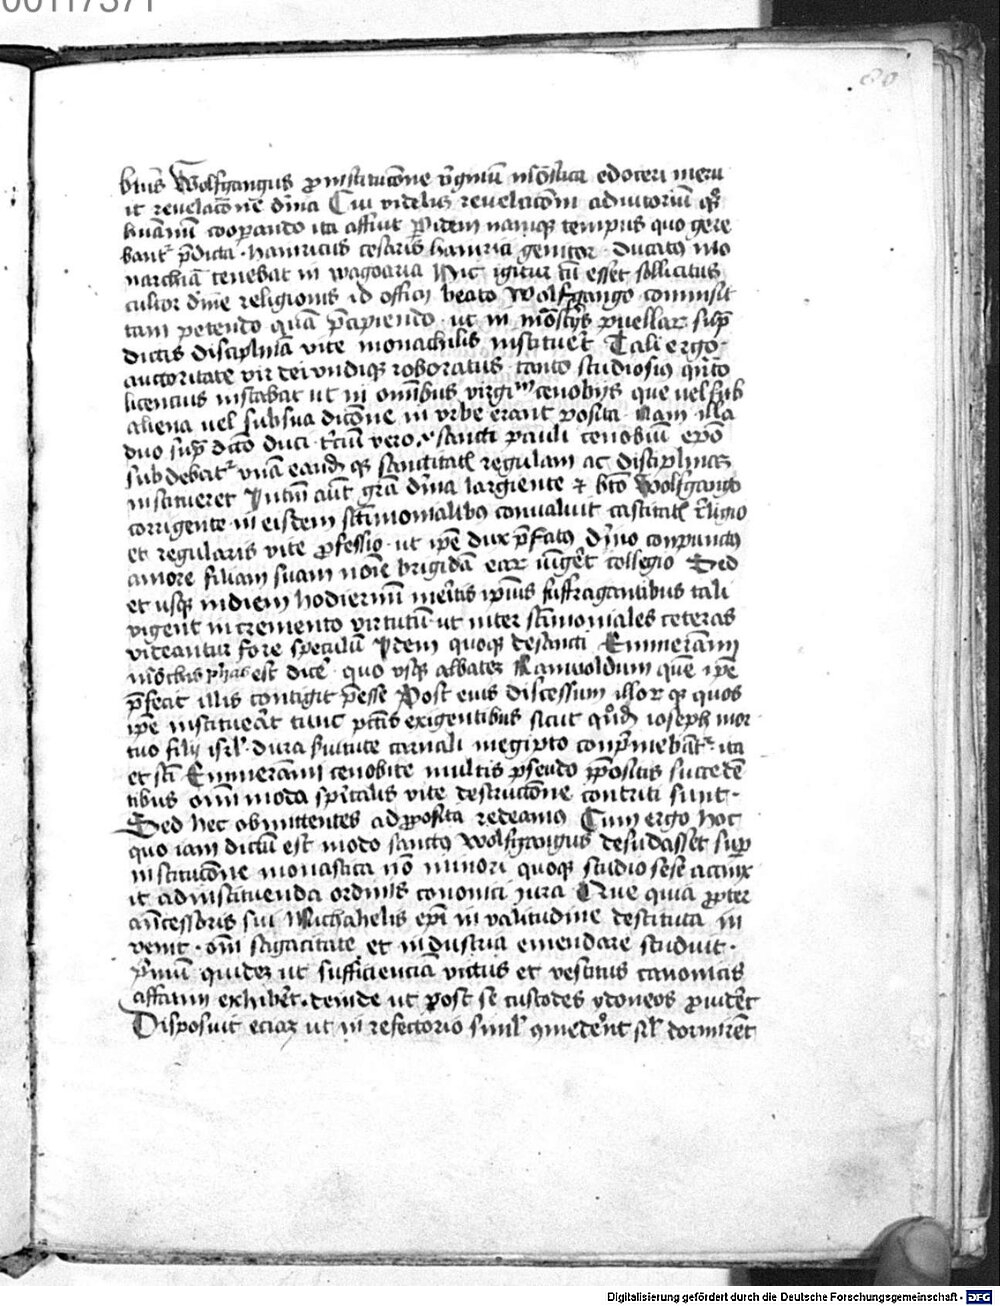 00117371
80
btus Wolfgangus p institucõne v̄ginũ mõastica edoceri meru
it revelacõne diuina Cui videlicet revelacõni adiutoriũ qq̃
humanũ coopando ita affuit Pridem namqȝ tempus quo gere
bant̃ p̃dicta · hainricus cesaris hainrici genitor · ducatus mo
narchiã tenebat in wagoaria Hic igitur cũ esset sollicitus
cultor diuine religionis id officij beato Wolfgango commisit
tam petendo quã p̃cipiendo · ut in mõstĩjs puellarȝ sup̃
dictis disciplinã vite monachilis institueret Tali ergo ·
auctoritate vir dei undiqȝ roboratus · tanto studiosius q̃nto
licencius instabat ut in om̃ibus virginũ cenobijs que vel sub
aliena vel sub sua dicõne in vrbe erant posita Nam illa
duo sup̃ dicto duci t̃ciũ vero sancti pauli cenobiũ ep̃o
subdebat̃ vnã eandẽqȝ sanctitatis regulam ac disciplinaȝ
institueret Intm̃ aũt grã diuina largiente et bto Wolfgango
corrigente in eisdem sc̃timonialibus conualuit castitatis religio
et regularis vite p̃fessio · ut ip̃e dux p̃fatus diuino conpunctus
amore filiam suam noĩe brigidã earȝ iũgeret collegio Sed
et usqȝ in diem hodiernũ meritis ip̃ius suffragantibus tali
vigent incremento virtutũ ut inter sc̃timoniales ceteras
videantur fore speculũ Idem quoqȝ de sancti Emmerãmi
mõchis phas est dicẽ · quo usqȝ abbateȝ Ramuoldum quẽ ip̃e
p̃fecit illis contigit p̃esse Post eius discessum illorȝ qȝ quos
ip̃e instituerat tunc pctis exigentibus sicut q̃ondã ioseph mor
tuo filij isrl̃ · dura s̃uitute carnali in egipto conp̃mebãt̃ · ita
et sc̃i Emmerãmi cenobite multis pseudo p̃positis succedẽ
tibus om̃i moda sp̃italis vite destructõne contriti sunt ·
Sed hec obmittentes ad p̃posita redeamus Cum ergo hoc
quo iam dictũ est modo sanctus Wolfgangus desudasset sup̃
institucõne monastica nõ minori quoqȝ studio sese accinx
it ad instituenda ordinis canonici jura Que quia p̃pter
ãncessoris sui Michahelis ep̃i in valitudine destituta in
venit · om̃i sagacitate et industria emendare studuit ·
p̃mũ quideȝ ut sufficienciã victus et vestitus canonicis
affatim exhiberet · deinde ut post se custodes ydoneos p̃uideret
Disposuit eciaȝ ut in refectorio simul comederent sil̃ dormirent
Digitalisierung gefördert durch die Deutsche Forschungsgemeinschaft - DFG